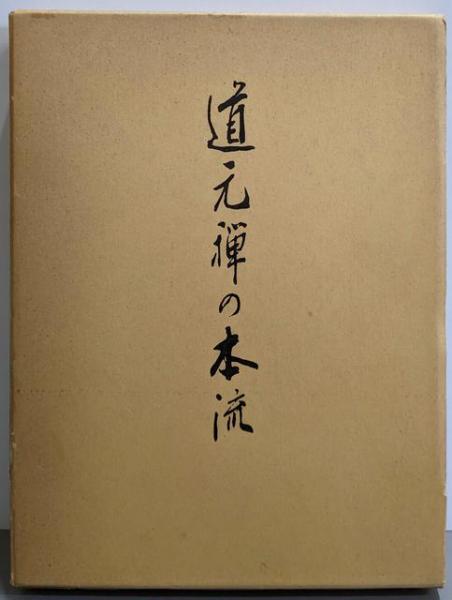 道元禅の本流